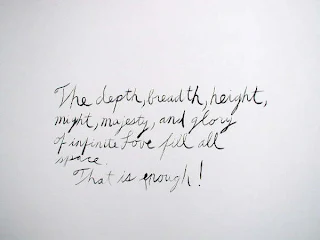 The depth, breadth, height,
might, majesty, and glory
of infinite Love fill all
space.
That is enough!